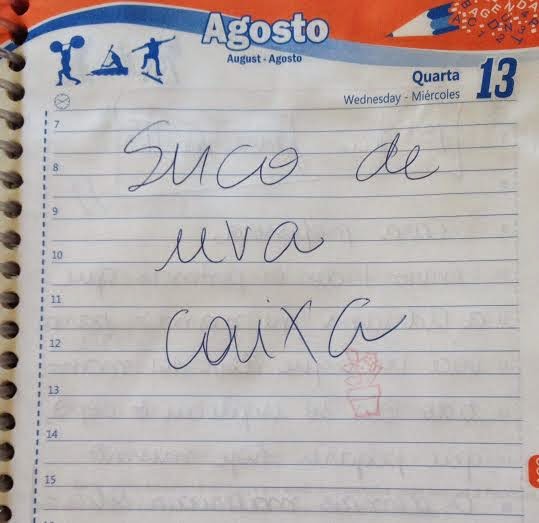 Agosto
August - Agosto
AGENDA
Quarta 13
Wednesday - Miércoles
7
Suco de
8
9
uva
10
11
caixa
12
13
14
15